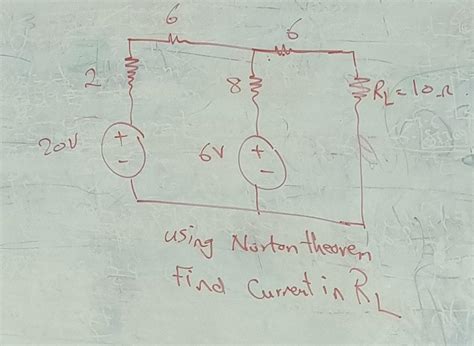 6
6
2
8
R_L = 10 Ω
20V
+
-
6V
+
-
using Norton theorem
Find Current in R_L